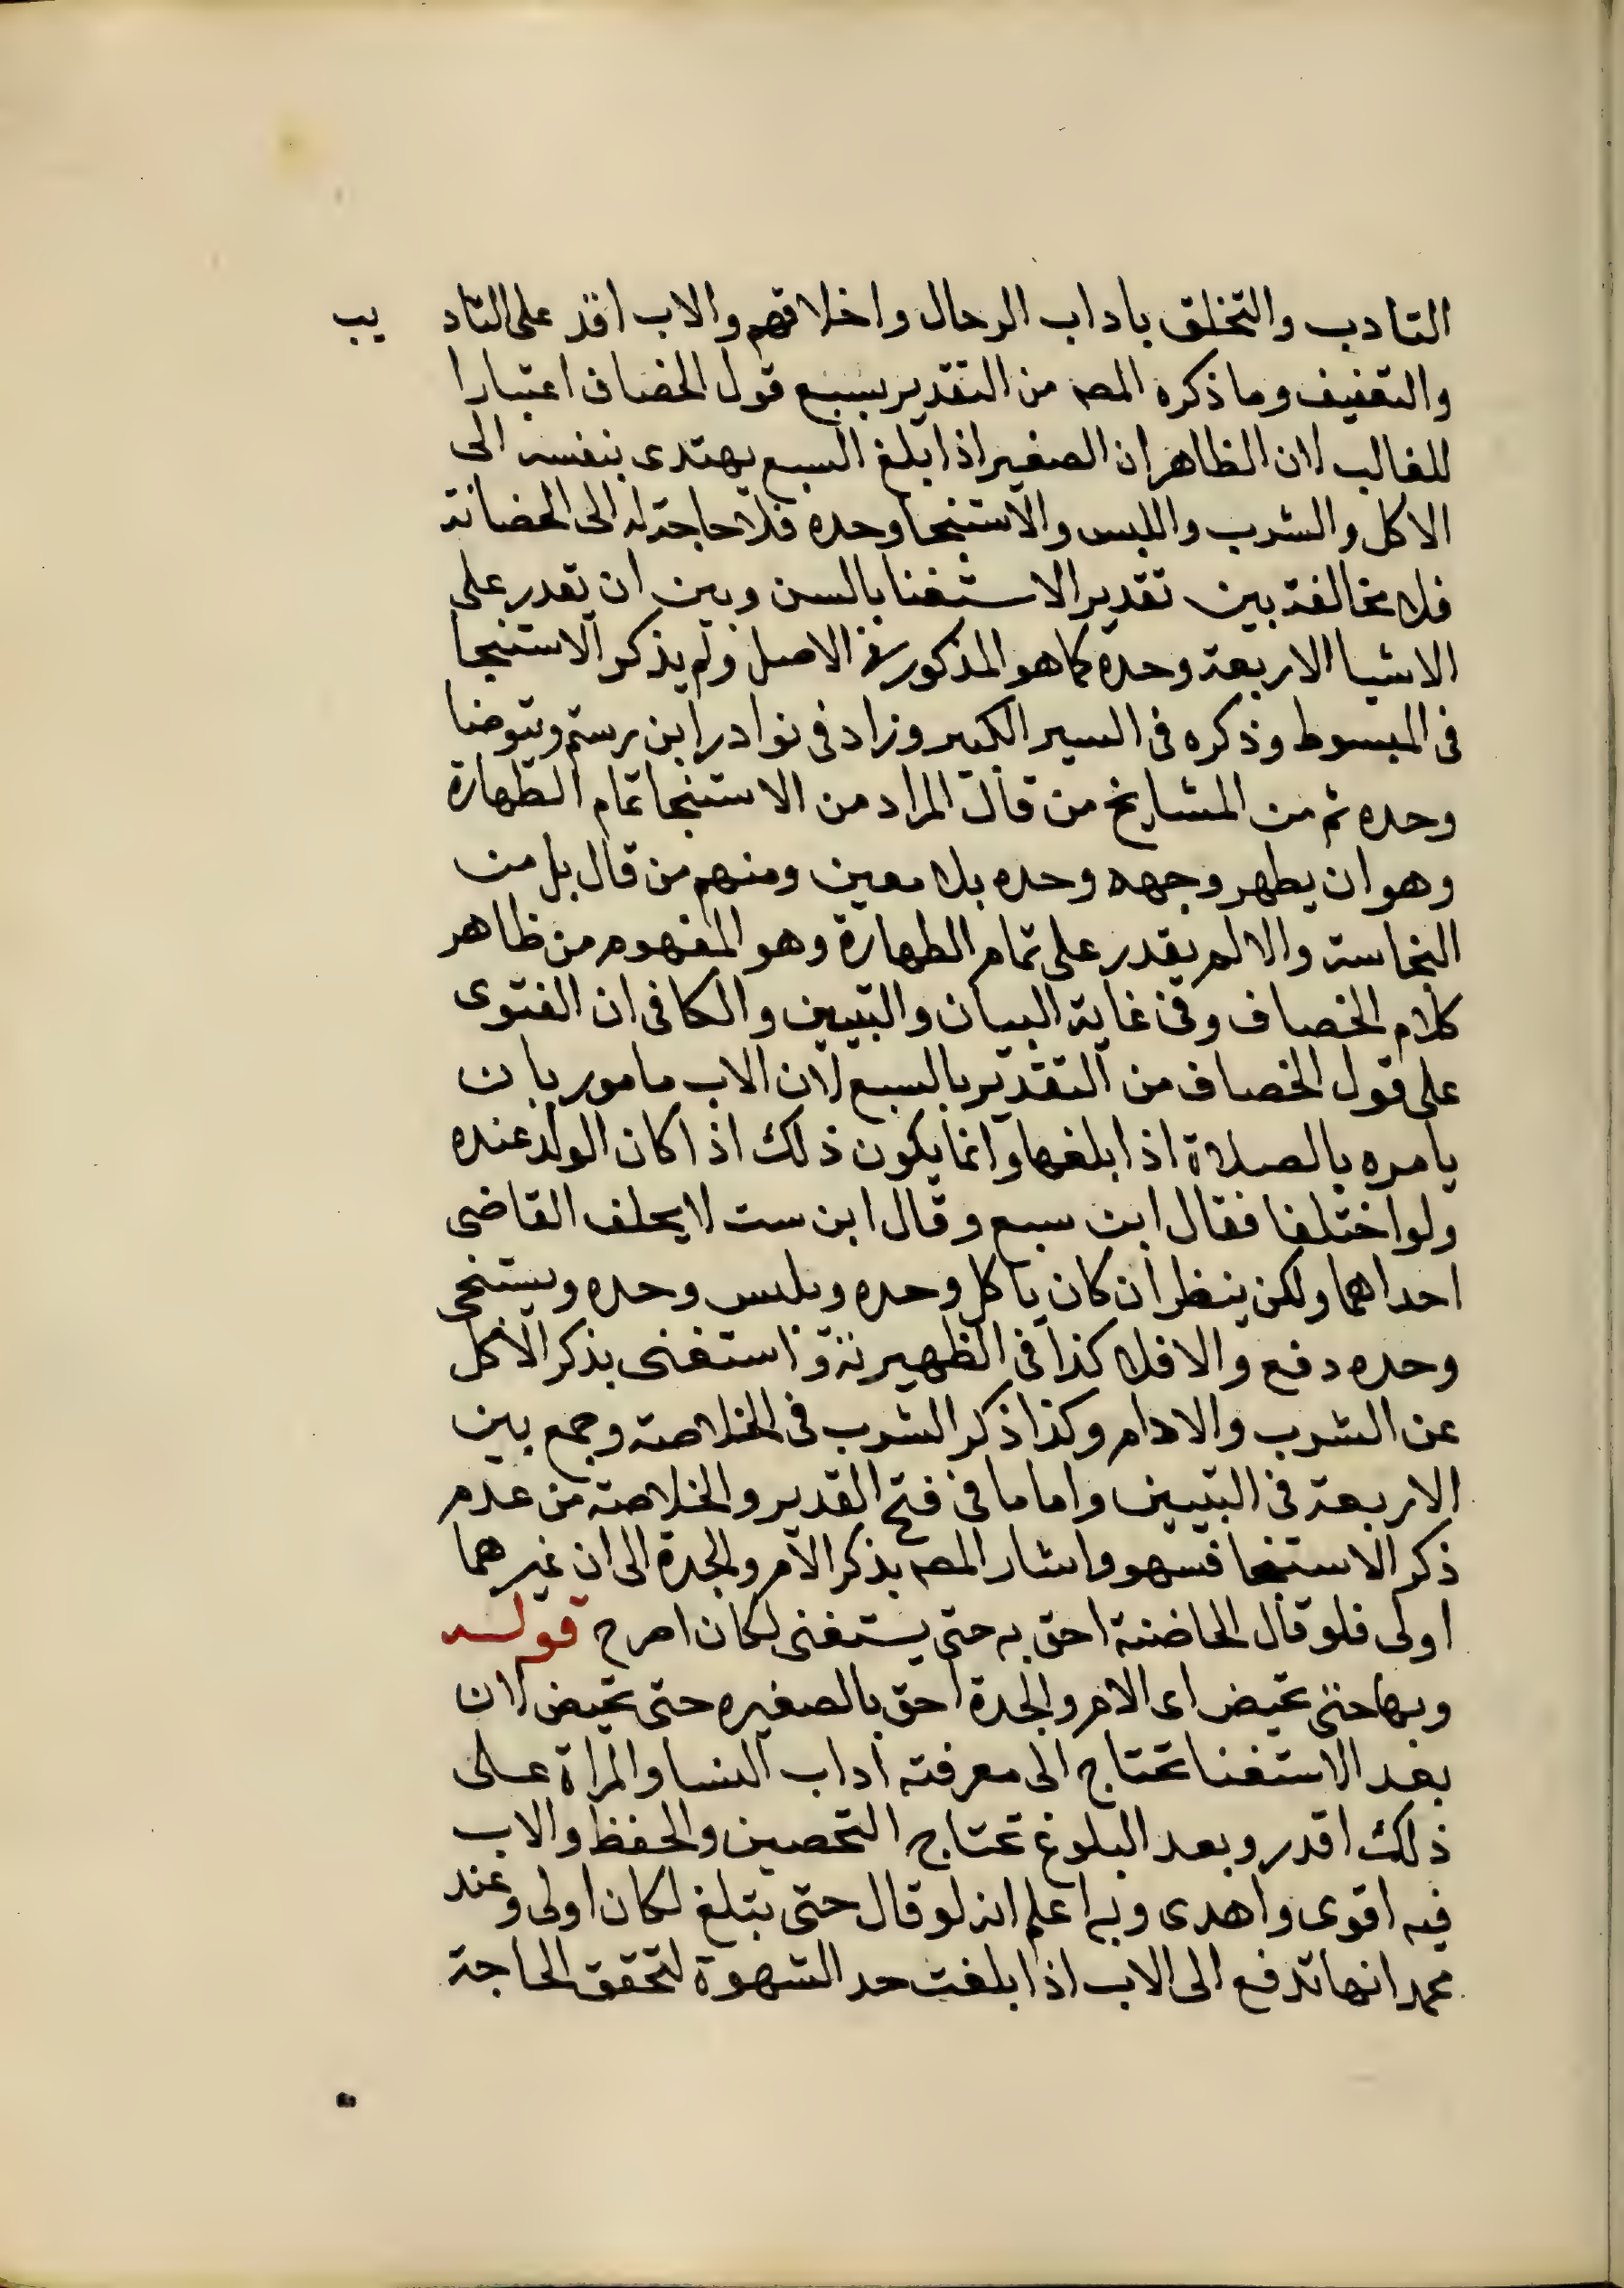 التادب والتخلق باداب الرجال واخلاقهم والاب اقدر على التاديب
والتعنيف وما ذكره المصه من التقدير بسبع قول الخصاف اعتبارا
للغالب لان الظاهر ان الصغير اذا بلغ السبع يهتدى بنفسه الى
الاكل والشرب واللبس والاستنجا وحده فلا حاجة له الى الحضانة
فلا مخالفة بين تقدير الاستغنا بالسن وبين ان تقدر على
الاشيا الاربعة وحده كما هو المذكور فى الاصل ولم يذكر الاستنجا
فى المبسوط وذكره فى السير الكبير وزاد فى نوادر ابن رستم ويتوضا
وحده ثم من المشايخ من قال المراد من الاستنجا تمام الطهارة
وهو ان يطهر وجهه وحده بلا معين ومنهم من قال بل من
النجاسة والا لم يقدر على تمام الطهارة وهو المفهوم من ظاهر
كلام الخصاف وفى غاية البيان والتبيين والكافى ان الفتوى
على قول الخصاف من التقدير بالسبع لان الاب مامور بان
يامره بالصلاة اذا بلغها وانما يكون ذلك اذا كان الولد عنده
ولو اختلفا فقال ابن سبع وقال ابن ست لا يحلف القاضى
احداهما ولكن ينظر ان كان ياكل وحده ويلبس وحده ويستنجى
وحده دفع والا فلا كذا فى الظهيرية واستغنى بذكر الاكل
عن الشرب والادام وكذا ذكر الشرب فى الخلاصة وجمع بين
الاربعة فى التبيين واما ما فى فتح القدير والخلاصة من عدم
ذكر الاستنجا فسهو واشار المصه بذكر الام والجدة الى ان غيرهما
اولى فلو قال الحاضنة احق به حتى يستغنى لكان اصرح قوله
وبها حتى تحيض اى الام والجدة احق بالصغيره حتى تحيض لان
بعد الاستغنا تحتاج الى معرفة اداب النسا والمراة على
ذلك اقدر وبعد البلوغ تحتاج التحصين والحفظ والاب
فيه اقوى واهدى وبه اعلم انه لو قال حتى تبلغ لكان اولى وعند
محمد انها تدفع الى الاب اذا بلغت حد الشهوة لتحقق الحاجة